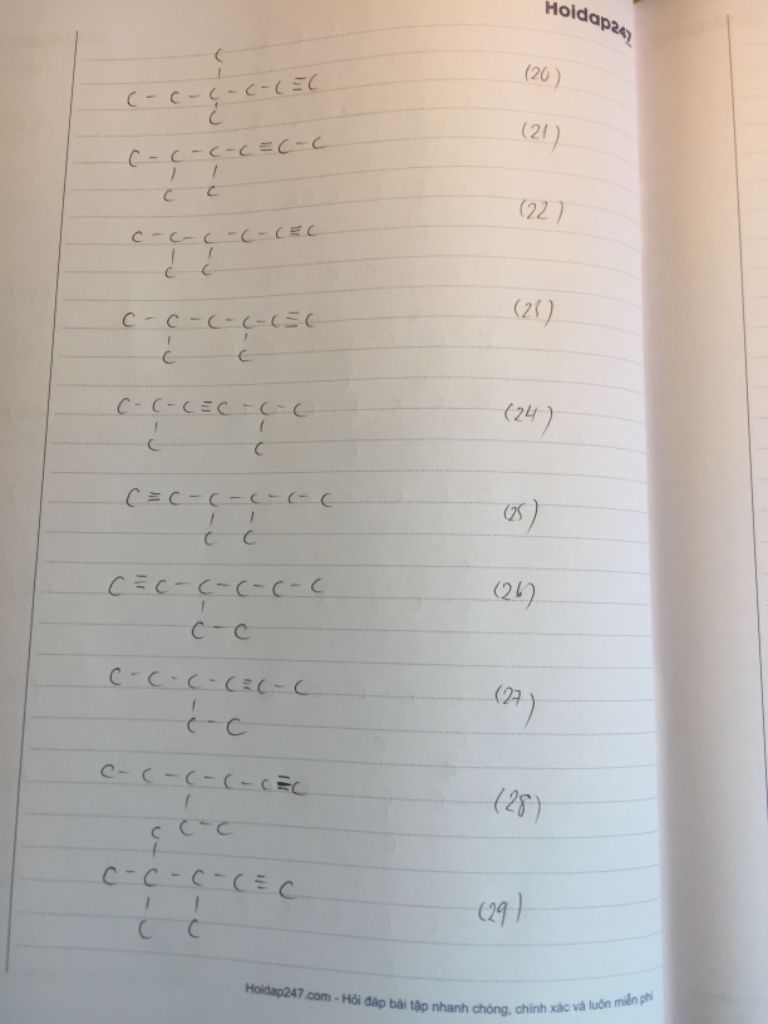 Hoidap247
C
C - C - C - C - C ≡ C (20)
C
C - C - C - C ≡ C - C (21)
C C
C - C - C - C - C ≡ C (22)
C C
C - C - C - C - C ≡ C (23)
C C
C - C - C ≡ C - C - C (24)
C C
C ≡ C - C - C - C - C (25)
C C
C ≡ C - C - C - C - C (26)
C - C
C - C - C - C ≡ C - C (27)
C - C
C - C - C - C - C ≡ C (28)
C - C
C
C - C - C - C ≡ C (29)
C C
Hoidap247.com - Hỏi đáp bài tập nhanh chóng, chính xác và luôn miễn phí